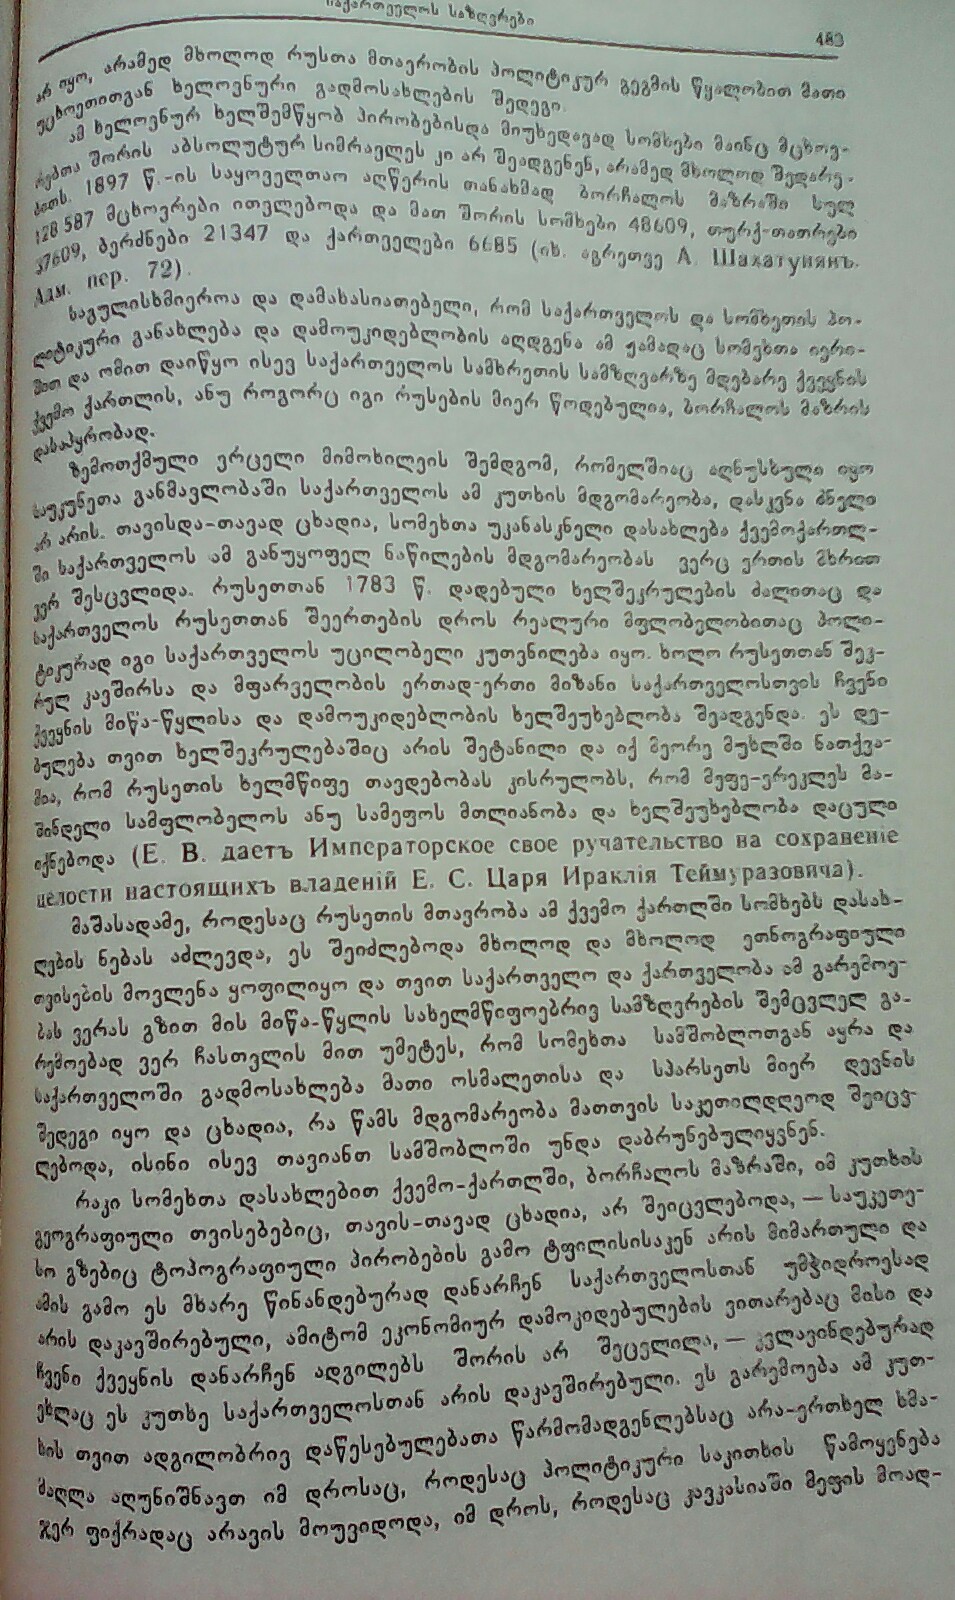 საქართველოს საზღვრები
483
არ იყო, არამედ მხოლოდ რუსთა მთავრობის პოლიტიკურ გეგმის წყალობით მათი
უცხოეთითგან ხელოვნური გადმოსახლების შედეგი.
ამ ხელოვნურ ხელშემწყობ პირობებისდა მიუხედავად სომხები მაინც მცხოვ-
რებთა შორის აბსოლუტურ სიმრავლეს კი არ შეადგენენ, არამედ მხოლოდ შედარე-
ბითს. 1897 წ.-ის საყოველთაო აღწერის თანახმად ბორჩალოს მაზრაში სულ
128 587 მცხოვრები ითვლებოდა და მათ შორის სომხები 48609, თურქ-თათრები
37609, ბერძნები 21347 და ქართველები 6685 (იხ. აგრეთვე А. Шахатунянъ.
Адм. пер. 72).
საგულისხმიეროა და დამახასიათებელი, რომ საქართველოს და სომხეთის პო-
ლიტიკური განახლება და დამოუკიდებლობის აღდგენა ამ ჟამადაც სომეხთა იერი-
შით და ომით დაიწყო ისევ საქართველოს სამხრეთის სამზღვარზე მდებარე ქვეყნის
ქვემო ქართლის, ანუ როგორც იგი რუსების მიერ წოდებულია, ბორჩალოს მაზრის
დასაპყრობად.
ზემოთქმული ვრცელი მიმოხილვის შემდგომ, რომელშიაც აღნუსხული იყო
საუკუნეთა განმავლობაში საქართველოს ამ კუთხის მდგომარეობა, დასკვნა ძნელი
არ არის. თავისდა-თავად ცხადია, სომეხთა უკანასკნელი დასახლება ქვემოქართლ-
ში საქართველოს ამ განუყოფელ ნაწილების მდგომარეობას ვერც ერთის მხრით
ვერ შესცვლიდა. რუსეთთან 1783 წ. დადებული ხელშეკრულების ძალითაც და
საქართველოს რუსეთთან შეერთების დროს რეალური მფლობელობითაც პოლი-
ტიკურად იგი საქართველოს უცილობელი კუთვნილება იყო. ხოლო რუსეთთან შეკ-
რულ კავშირსა და მფარველობის ერთად-ერთი მიზანი საქართველოსთვის ჩვენი
ქვეყნის მიწა-წყლისა და დამოუკიდებლობის ხელშეუხებლობა შეადგენდა. ეს დე-
ბულება თვით ხელშეკრულებაშიც არის შეტანილი და იქ მეორე მუხლში ნათქვა-
მია, რომ რუსეთის ხელმწიფე თავდებობას კისრულობს, რომ მეფე-ერეკლეს მა-
შინდელი სამფლობელოს ანუ სამეფოს მთლიანობა და ხელშეუხებლობა დაცული
იქნებოდა (Е. В. даетъ Императорское свое ручательство на сохраненіе
целости настоящихъ владеній Е. С. Царя Ираклія Теймуразовича).
მაშასადამე, როდესაც რუსეთის მთავრობა ამ ქვემო ქართლში სომხებს დასახ-
ლების ნებას აძლევდა, ეს შეიძლებოდა მხოლოდ და მხოლოდ ეთნოგრაფიული
თვისების მოვლენა ყოფილიყო და თვით საქართველო და ქართველობა ამ გარემოე-
ბას ვერას გზით მის მიწა-წყლის სახელმწიფოებრივ სამზღვრების შემცვლელ გა-
რემოებად ვერ ჩასთვლის მით უმეტეს, რომ სომეხთა სამშობლოთგან აყრა და
საქართველოში გადმოსახლება მათი ოსმალეთისა და სპარსეთს მიერ დევნის
შედეგი იყო და ცხადია, რა წამს მდგომარეობა მათთვის საკეთილდღეოდ შეიცვ-
ლებოდა, ისინი ისევ თავიანთ სამშობლოში უნდა დაბრუნებულიყვნენ.
რაკი სომეხთა დასახლებით ქვემო-ქართლში, ბორჩალოს მაზრაში, იმ კუთხის
გეოგრაფიული თვისებებიც, თავის-თავად ცხადია, არ შეიცვლებოდა, — საუკეთე-
სო გზებიც ტოპოგრაფიული პირობების გამო ტფილისისაკენ არის მიმართული და
ამის გამო ეს მხარე წინანდებურად დანარჩენ საქართველოსთან უმჭიდროესად
არის დაკავშირებული, ამიტომ ეკონომიურ დამოკიდებულების ვითარებაც მისი და
ჩვენი ქვეყნის დანარჩენ ადგილებს შორის არ შეცვლილა, — კვლავინდებურად
ეხლაც ეს კუთხე საქართველოსთან არის დაკავშირებული. ეს გარემოება ამ კუთ-
ხის თვით ადგილობრივ დაწესებულებათა წარმომადგენლებსაც არა-ერთხელ ხმა-
მაღლა აღუნიშნავთ იმ დროსაც, როდესაც პოლიტიკური საკითხის წამოყენება
ჯერ ფიქრადაც არავის მოუვიდოდა, იმ დროს, როდესაც კავკასიაში მეფის მოად-